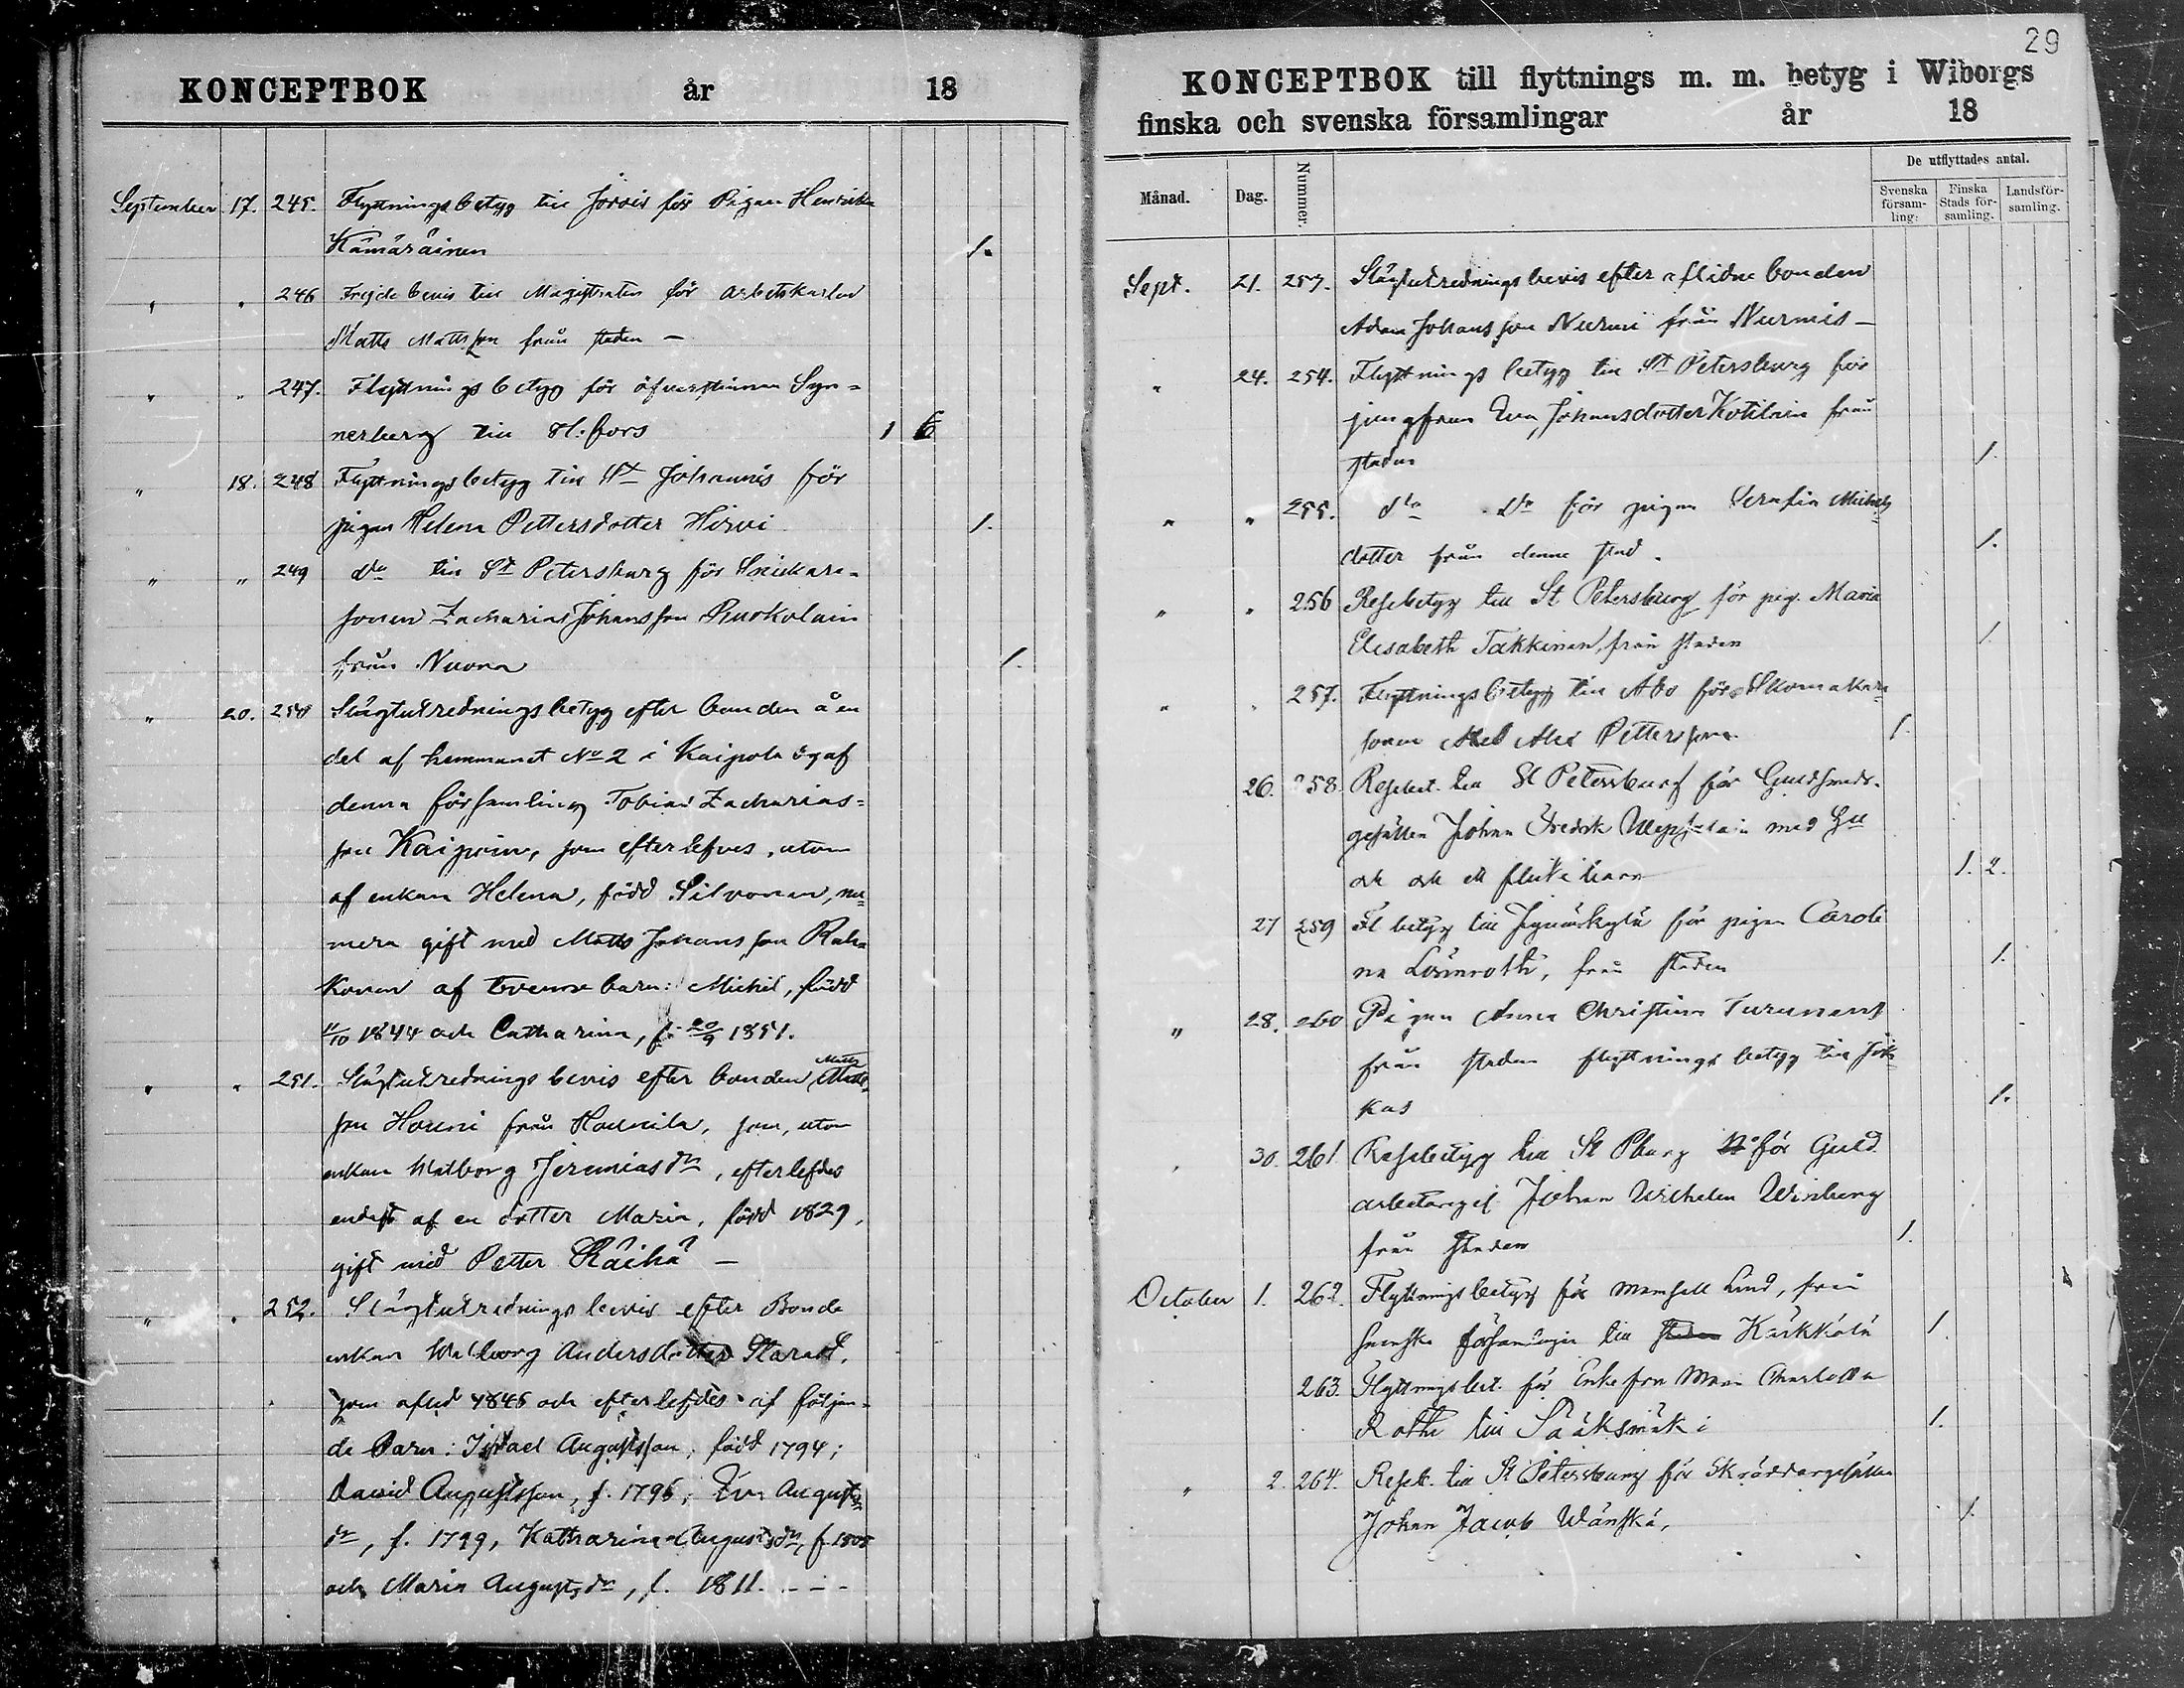 KONCEPTBOK år 18
September 17. 245. Flyttningsbetyg till Jorois för Pigan Henrika
Kämäräinen 1.
" " 246 Frejdebevis till Magistraten för arbetskarlen
Matts Mattsson från staden —
" " 247. Flyttningsbetyg för öfverstinnan
nerberg till H:fors 1 6
" 18. 248 Flyttningsbetyg till St Johannis för
pigan Helena Pettersdotter Hirvi 1.
" " 249 do till St Petersburg för Snickare-
sonen Zacharias Johansson
från Nuora 1.
" 20. 250 Slägtutredningsbetyg efter bonden å en
del af hemmanet No 2 i Kaipola by af
denna församling Tobias Zacharias=
son Kaipiain, som efterlefves, utom
af enkan Helena, född Silvonen, nu=
mera gift med Matts Johansson
konen af tvenne barn: Michel, född
11/10 1844 och Catharina, f. 20/9 1851.
" " 251. Slägtutredningsbevis efter bonden Matts Matts
son Houni från Hounila, som, utom
enkan Walborg Jeremiasdr, efterlefdes
endast af en dotter Maria, född 1829,
gift med Petter Räihä —
" " 252. Slägtutredningsbevis efter Bonde
enkan Walborg Andersdotter Starast,
som afled 1846 och efterlefdes af följan-
de Barn: Israel Augustsson, född 1794;
David Augustsson, f. 1796; Eva Augusts
dr, f. 1799, Katharina Augustsdr, f. 1805
och Maria Augustsdr, f. 1811. - - -
29
KONCEPTBOK till flyttnings m. m. betyg i Wiborgs
finska och svenska församlingar år 18
Månad. Dag. Nummer. De utflyttades antal.
Svenska försam-ling: Finska Stads för-samling. Landsför-samling.
Sept. 21. 253. Slägtutredningsbevis efter aflidne bonden
Adam Johansson Nurmi från Nurmis —
" 24. 254. Flyttningsbetyg till St Petersburg för
jungfrun Eva Johansdotter Kotilain från
staden 1.
" " 255. dto do för pigan Serafia Michels
dotter från denne stad. 1.
" " 256 Resebetyg till St Petersburg för pig. Maria
Elisabeth Takkinen, från staden 1.
" " 257. Flyttningsbetyg till Åbo för Skomakare
sonen Axel Alex Pettersson 1.
26. 258. Resebet. till St Petersburg för Guldsmeds-
gesällen Johan Fredrik med Hu
och ett flickebarn 1. 2.
27 259 Fl betyg till Jyväskylä för pigan Caroli
na Lönnroth, från staden 1.
" 28. 260 Pigan Anna Christina Turunen
från staden flyttningsbetyg till Jok
kas 1.
" 30. 261 Resebetyg till St Pburg för Guld
arbetaregs. Johan Wilhelm Winberg
från staden 1.
October 1. 262. Flyttningsbetyg för Mamsell Lind, från
svenska församlingen till Kärkkölä 1.
263. Flyttningsbet. för Enkefru Maria Charlotta
Roth till Sääksmäki 1.
" 2. 264. Reseb. till St Petersburg för Skräddargesällen
Johan Jacob Wänskä, 1.